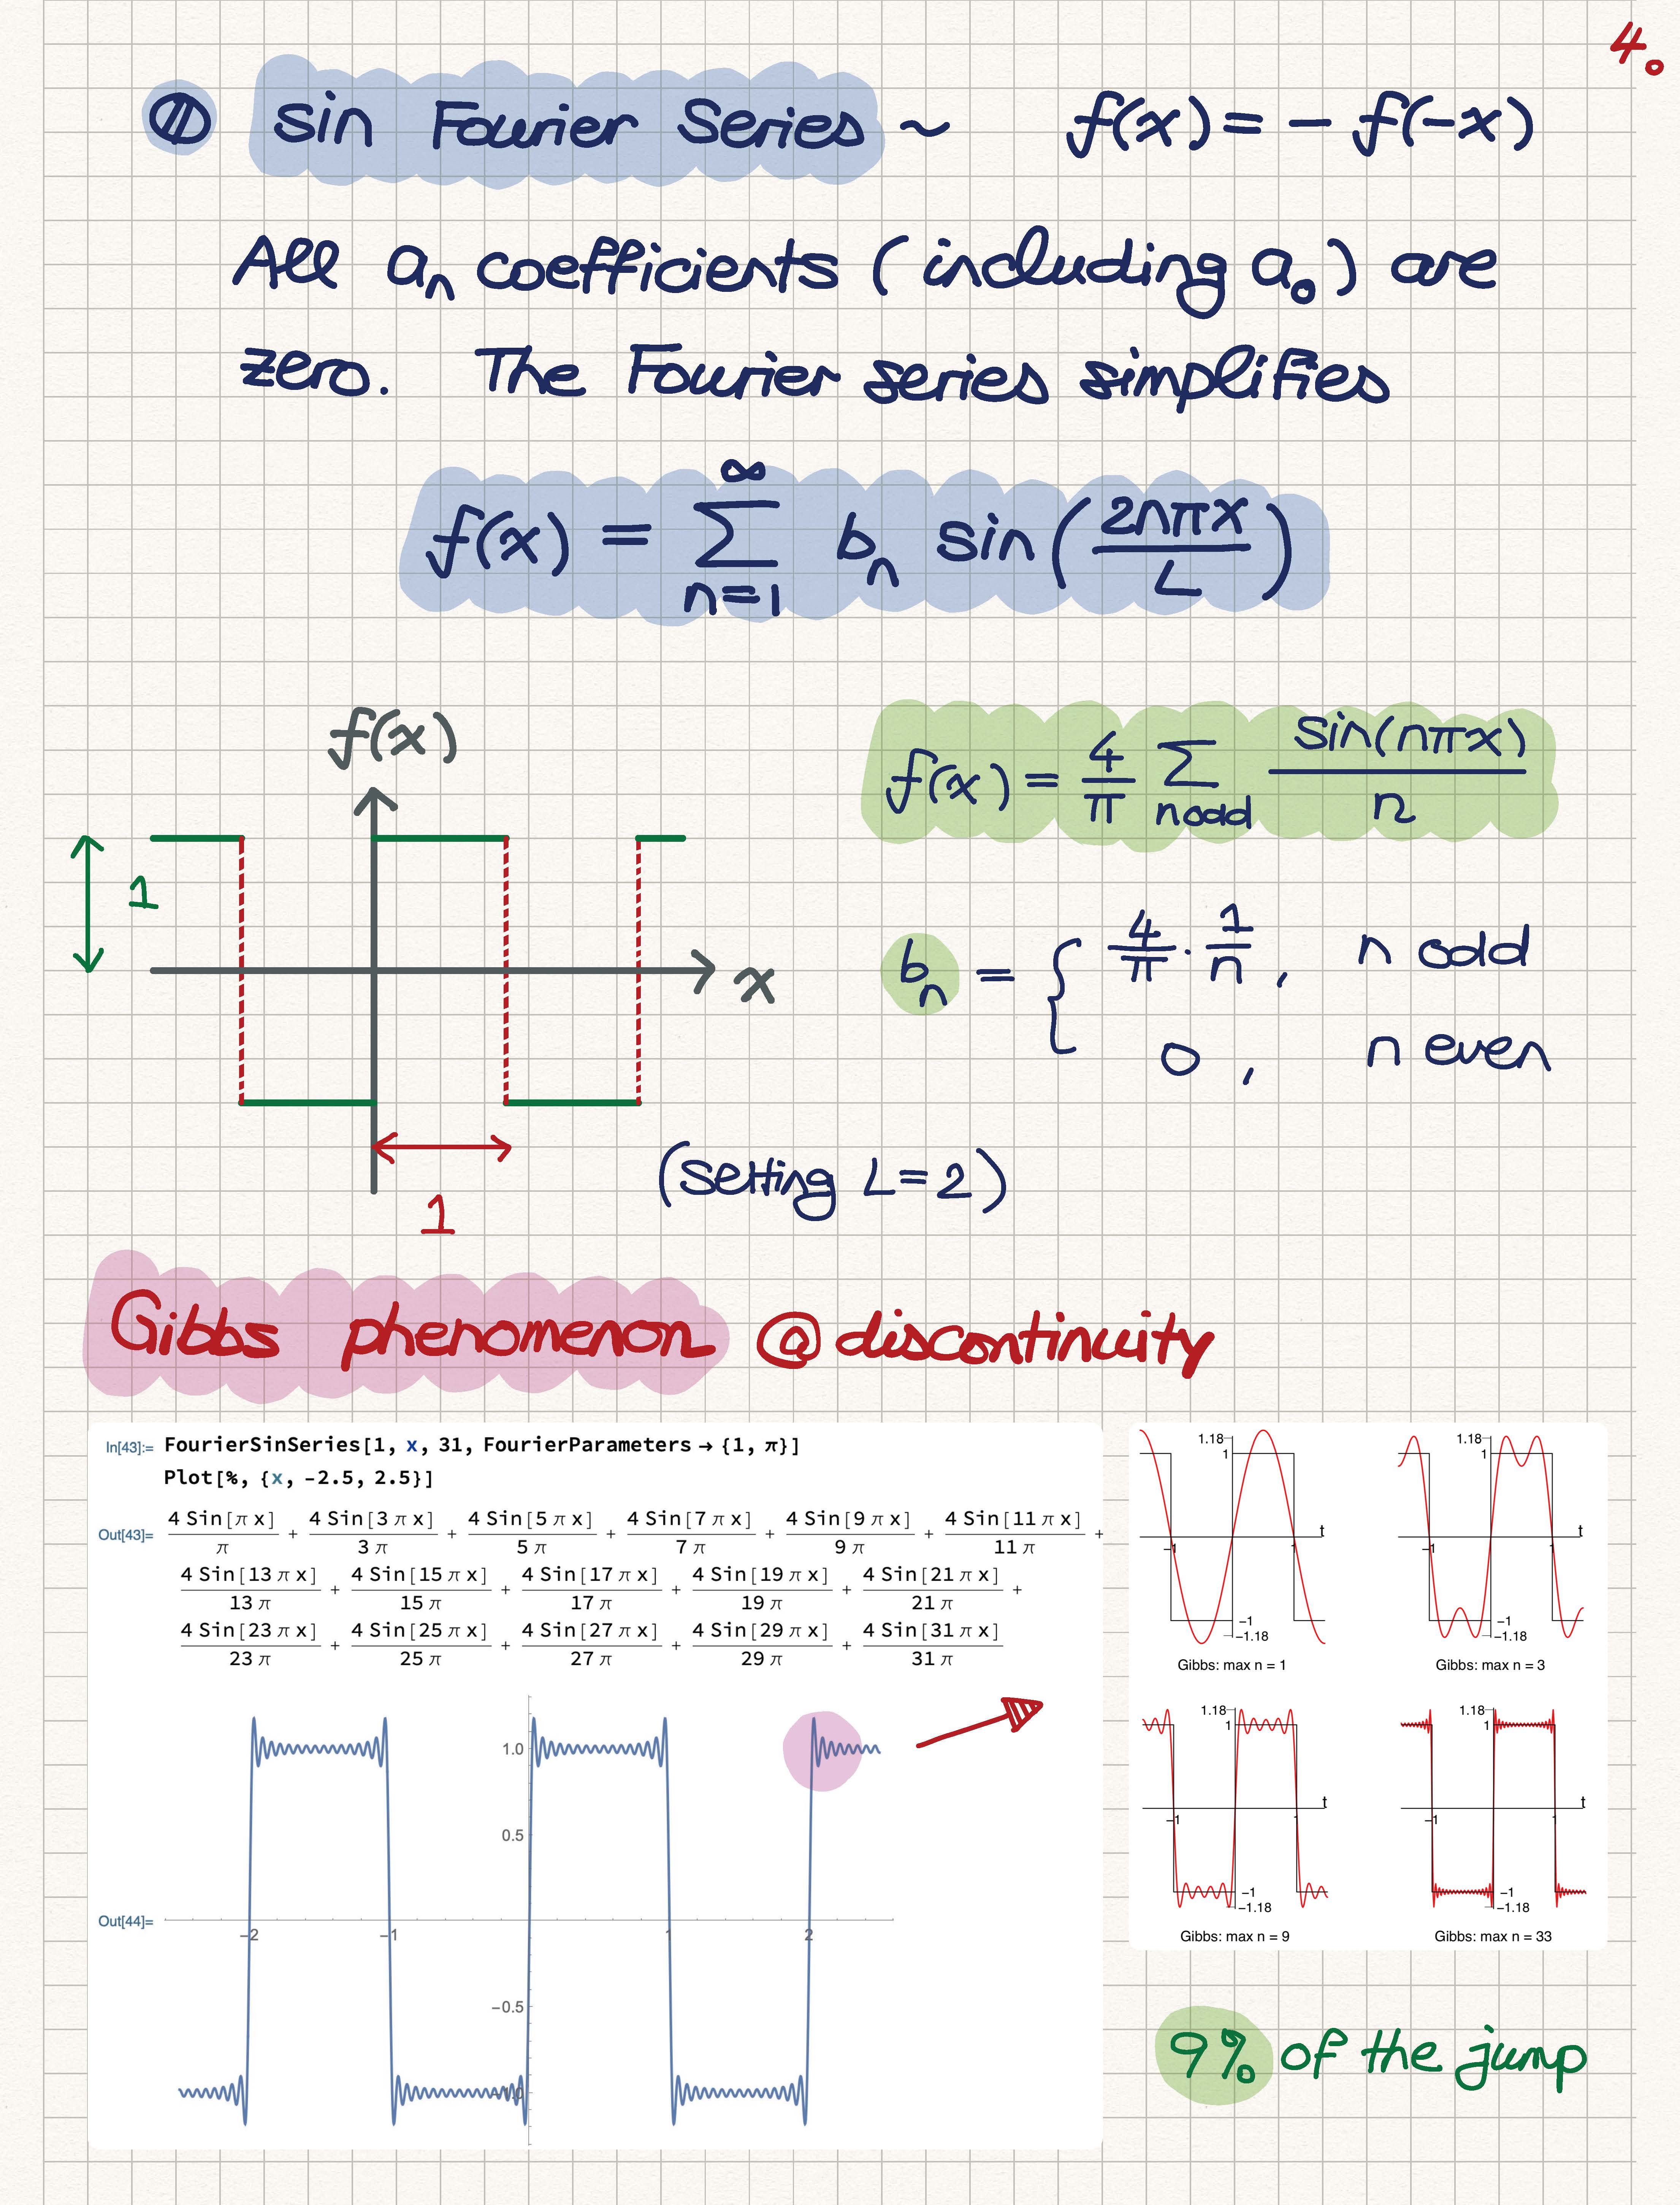 4.
Ⅱ sin Fourier Series ~ f(x) = - f(-x)
All aₙ coefficients (including a₀) are
zero. The Fourier series simplifies
f(x) = ∑_{n=1}^{∞} bₙ sin(2nπx/L)
f(x)
f(x) = 4/π ∑_{n odd} sin(nπx)/n
1
x
bₙ = { 4/π · 1/n , n odd
0 , n even
(Setting L=2)
1
Gibbs phenomenon @ discontinuity
In[43]:= FourierSinSeries[1, x, 31, FourierParameters → {1, π}]
Plot[%, {x, -2.5, 2.5}]
Out[43]= 4 Sin[π x]/π + 4 Sin[3 π x]/3 π + 4 Sin[5 π x]/5 π + 4 Sin[7 π x]/7 π + 4 Sin[9 π x]/9 π + 4 Sin[11 π x]/11 π +
4 Sin[13 π x]/13 π + 4 Sin[15 π x]/15 π + 4 Sin[17 π x]/17 π + 4 Sin[19 π x]/19 π + 4 Sin[21 π x]/21 π +
4 Sin[23 π x]/23 π + 4 Sin[25 π x]/25 π + 4 Sin[27 π x]/27 π + 4 Sin[29 π x]/29 π + 4 Sin[31 π x]/31 π
1.0
0.5
Out[44]=
-2 -1 1 2
-0.5
-1.0
1.18
1
t
-1 1
-1
-1.18
Gibbs: max n = 1
1.18
1
t
-1 1
-1
-1.18
Gibbs: max n = 3
1.18
1
t
-1 1
-1
-1.18
Gibbs: max n = 9
1.18
1
t
-1 1
-1
-1.18
Gibbs: max n = 33
9% of the jump